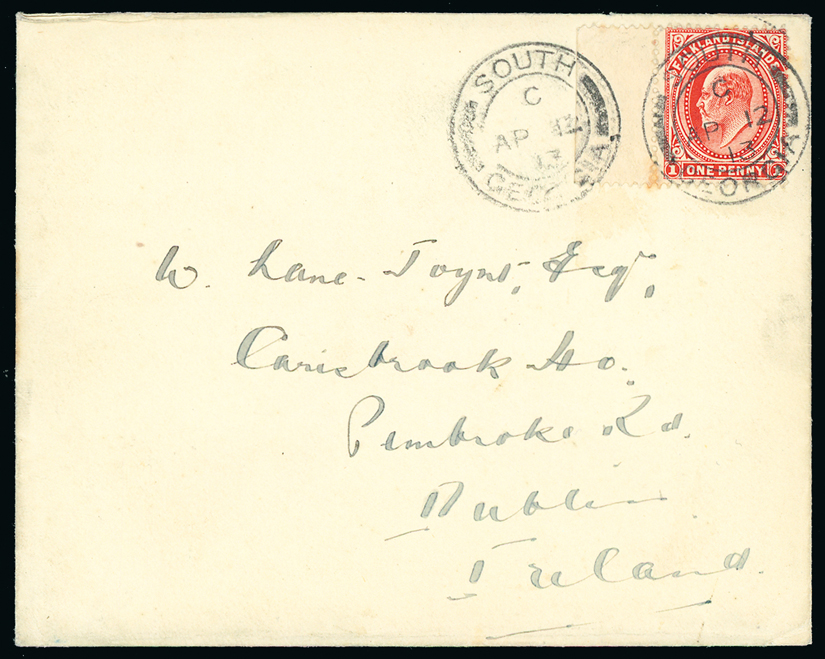 SOUTH
C
AP 12
13
GEORGIA
FALKLAND ISLANDS
SOUTH
C
AP 12
13
GEORGIA
1 ONE PENNY 1
W. Lane-Joynt, Esqr.
Carisbrook Ho.
Pembroke Rd.
Dublin
Ireland.